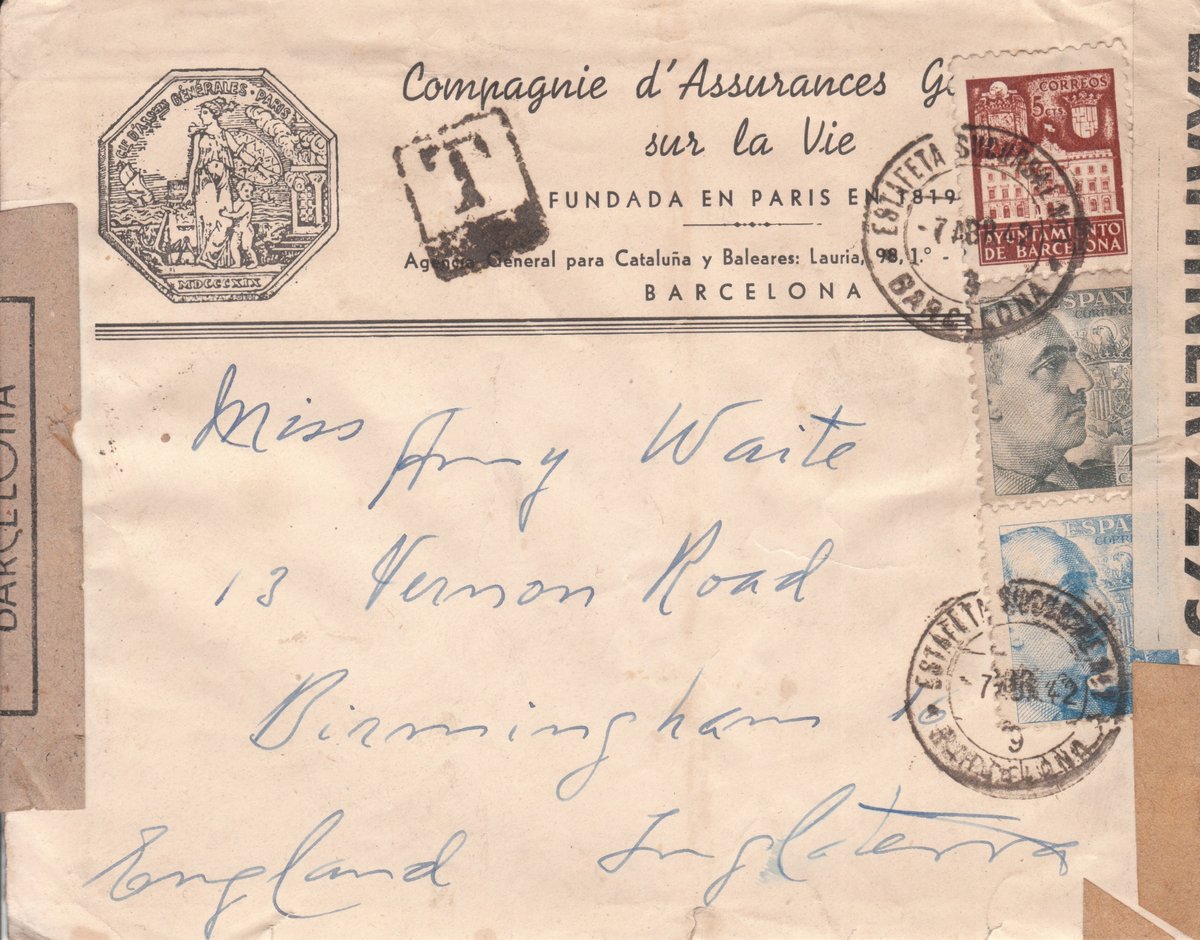 CIE D'ASSCES GÉNÉRALES · PARIS
MDCCCXIX
Compagnie d'Assurances
sur la Vie
FUNDADA EN PARIS EN 1819
Agencia General para Cataluña y Baleares: Lauria, 98, 1.º -
BARCELONA
T
CORREOS
5 CTS
AYUNTAMIENTO
DE BARCELONA
ESTAFETA SUCURSAL
-7 ABR 42
BARCELONA
ESPAÑA
CORREOS
ESPAÑA
ESTAFETA SUCURSAL
-7 ABR 42
9
BARCELONA
BARCELONA
EXAMINER 2275
Miss Amy Waite
13 Vernon Road
Birmingham
England Inglaterra